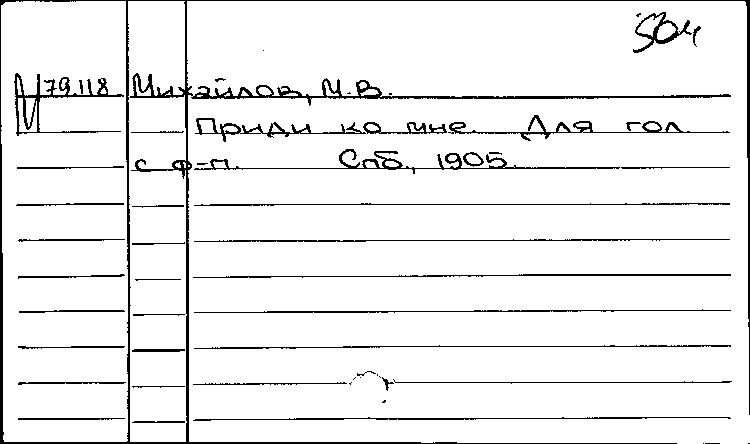 504
79.118 Михайлов, М.В.
Приди ко мне. Для гол.
с ф-п. Спб., 1905.